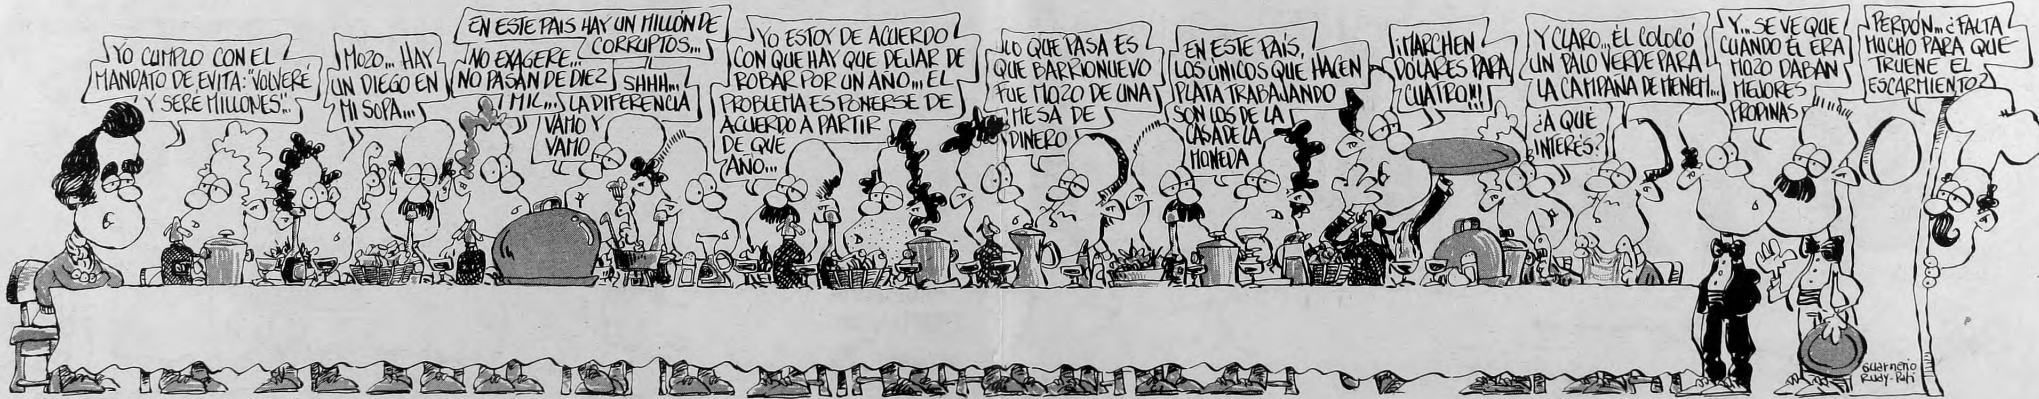 YO CUMPLO CON EL
MANDATO DE EVITA: "VOLVERÉ
Y SERÉ MILLONES"..
MOZO... HAY
UN DIEGO EN
MI SOPA...
EN ESTE PAIS HAY UN MILLÓN DE
CORRUPTOS...
NO EXAGERE...
NO PASAN DE DIEZ
MIL...
SHHH...
LA DIFERENCIA
VAMO Y
VAMO
YO ESTOY DE ACUERDO
CON QUE HAY QUE DEJAR DE
ROBAR POR UN AÑO... EL
PROBLEMA ES PONERSE DE
ACUERDO A PARTIR
DE QUE
AÑO...
LO QUE PASA ES
QUE BARRIONUEVO
FUE MOZO DE UNA
MESA DE
DINERO
EN ESTE PAÍS,
LOS ÚNICOS QUE HACEN
PLATA TRABAJANDO
SON LOS DE LA
CASA DE LA
MONEDA
¡MARCHEN
DOLARES PARA
CUATRO!!!
Y CLARO... ÉL COLOCÓ
UN PALO VERDE PARA
LA CAMPAÑA DE MENEM...
¿A QUÉ
INTERÉS?
Y... SE VE QUE
CUANDO ÉL ERA
MOZO DABAN
MEJORES
PROPINAS
PERDÓN... ¿FALTA
MUCHO PARA QUE
TRUENE EL
ESCARMIENTO?
Guarnerio
Rudy-Pati